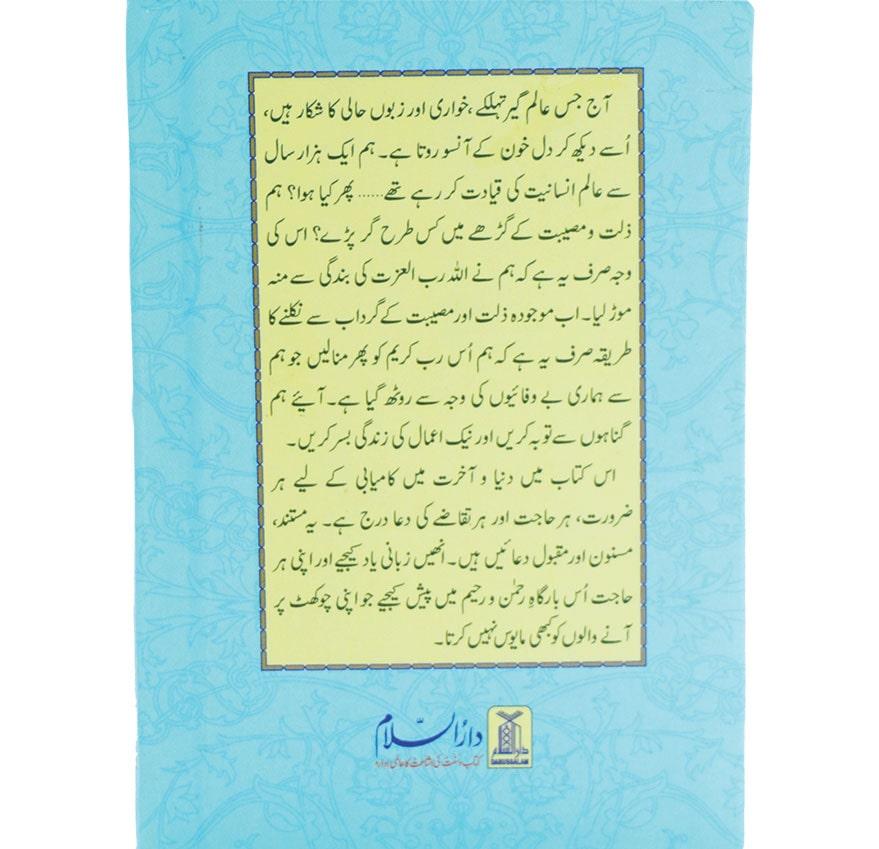 آج جس عالم گیر تہلکے، خواری اور زبوں حالی کا شکار ہیں،
اُسے دیکھ کر دل خون کے آنسو روتا ہے۔ ہم ایک ہزار سال
سے عالم انسانیت کی قیادت کر رہے تھے...... پھر کیا ہوا؟ ہم
ذلت و مصیبت کے گڑھے میں کس طرح گر پڑے؟ اس کی
وجہ صرف یہ ہے کہ ہم نے اللہ رب العزت کی بندگی سے منہ
موڑ لیا۔ اب موجودہ ذلت اور مصیبت کے گرداب سے نکلنے کا
طریقہ صرف یہ ہے کہ ہم اُس رب کریم کو پھر منالیں جو ہم
سے ہماری بے وفائیوں کی وجہ سے روٹھ گیا ہے۔ آئیے ہم
گناہوں سے توبہ کریں اور نیک اعمال کی زندگی بسر کریں۔
اس کتاب میں دنیا و آخرت میں کامیابی کے لیے ہر
ضرورت، ہر حاجت اور ہر تقاضے کی دعا درج ہے۔ یہ مستند،
مسنون اور مقبول دعائیں ہیں۔ انھیں زبانی یاد کیجیے اور اپنی ہر
حاجت اُس بارگاہِ رحمٰن و رحیم میں پیش کیجیے جو اپنی چوکھٹ پر
آنے والوں کو کبھی مایوس نہیں کرتا۔
دارُالسّلام
کتاب و سُنّت کی اشاعت کا عالمی ادارہ
دارالسلام
DARUSSALAM